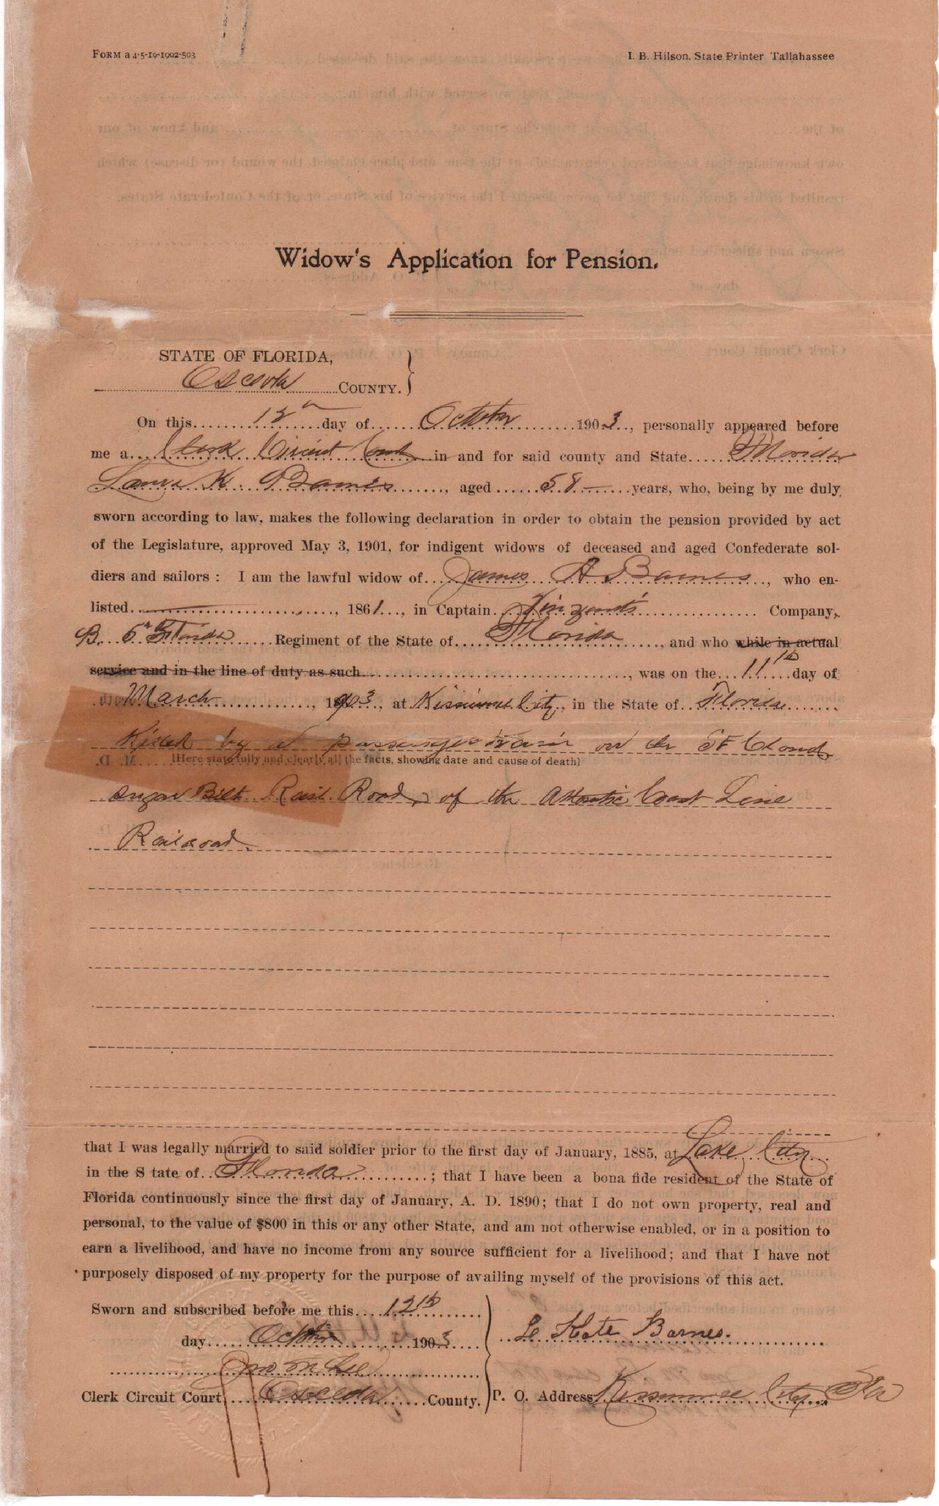 FORM a 4-5-19-1902-503
I. B. Hilson, State Printer Tallahassee
Widow's Application for Pension.
STATE OF FLORIDA,
Osceola COUNTY.
On this 12th day of October 1903, personally appeared before
me a Clerk Circuit Court in and for said county and State Florida
Laura K. Barnes, aged 58 years, who, being by me duly
sworn according to law, makes the following declaration in order to obtain the pension provided by act
of the Legislature, approved May 3, 1901, for indigent widows of deceased and aged Confederate sol-
diers and sailors : I am the lawful widow of James A Barnes, who en-
listed, 1861, in Captain Company,
B. 5th Florida Regiment of the State of Florida, and who while in actual
service and in the line of duty as such, was on the 11th day of
March, 1903, at Kissimmee City, in the State of Florida
Killed by a passenger train on the St Cloud
[Here state fully and clearly all the facts, showing date and cause of death]
Sugar Belt Rail Road, of the Atlantic Coast Line
Railroad.
that I was legally married to said soldier prior to the first day of January, 1885, at Lake City
in the S tate of Florida ; that I have been a bona fide resident of the State of
Florida continuously since the first day of January, A. D. 1890; that I do not own property, real and
personal, to the value of $800 in this or any other State, and am not otherwise enabled, or in a position to
earn a livelihood, and have no income from any source sufficient for a livelihood; and that I have not
purposely disposed of my property for the purpose of availing myself of the provisions of this act.
Sworn and subscribed before me this 12th
day October 1903
L Kate Barnes.
Jno. M Lee
Clerk Circuit Court Osceola County.
P. O. Address Kissimmee City, Fla